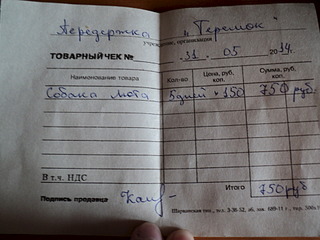 Передержка „Теремок"
учреждение, организация
ТОВАРНЫЙ ЧЕК № "31" 05 2014.
Наименование товара Кол-во Цена, руб. коп. Сумма, руб. коп.
Собака Мота 5 дней × 150 750 руб.
В т.ч. НДС
Итого 750 руб
Подпись продавца